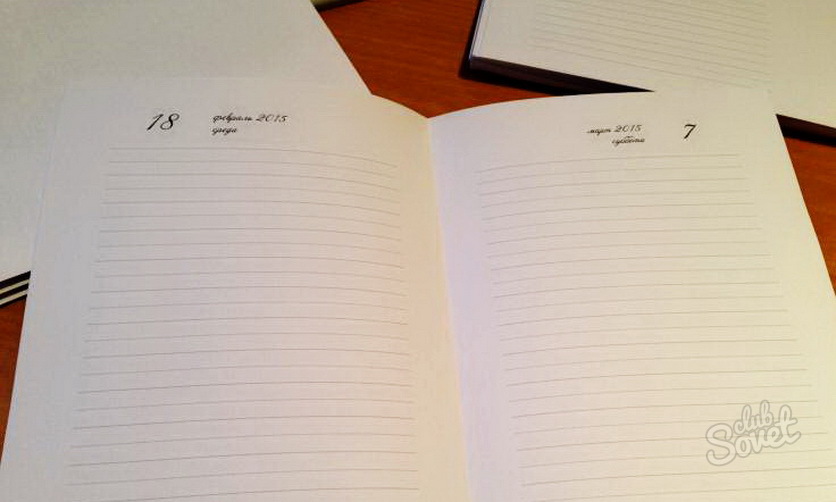 18
февраль 2015
среда
март 2015
суббота
7
club
Sovet